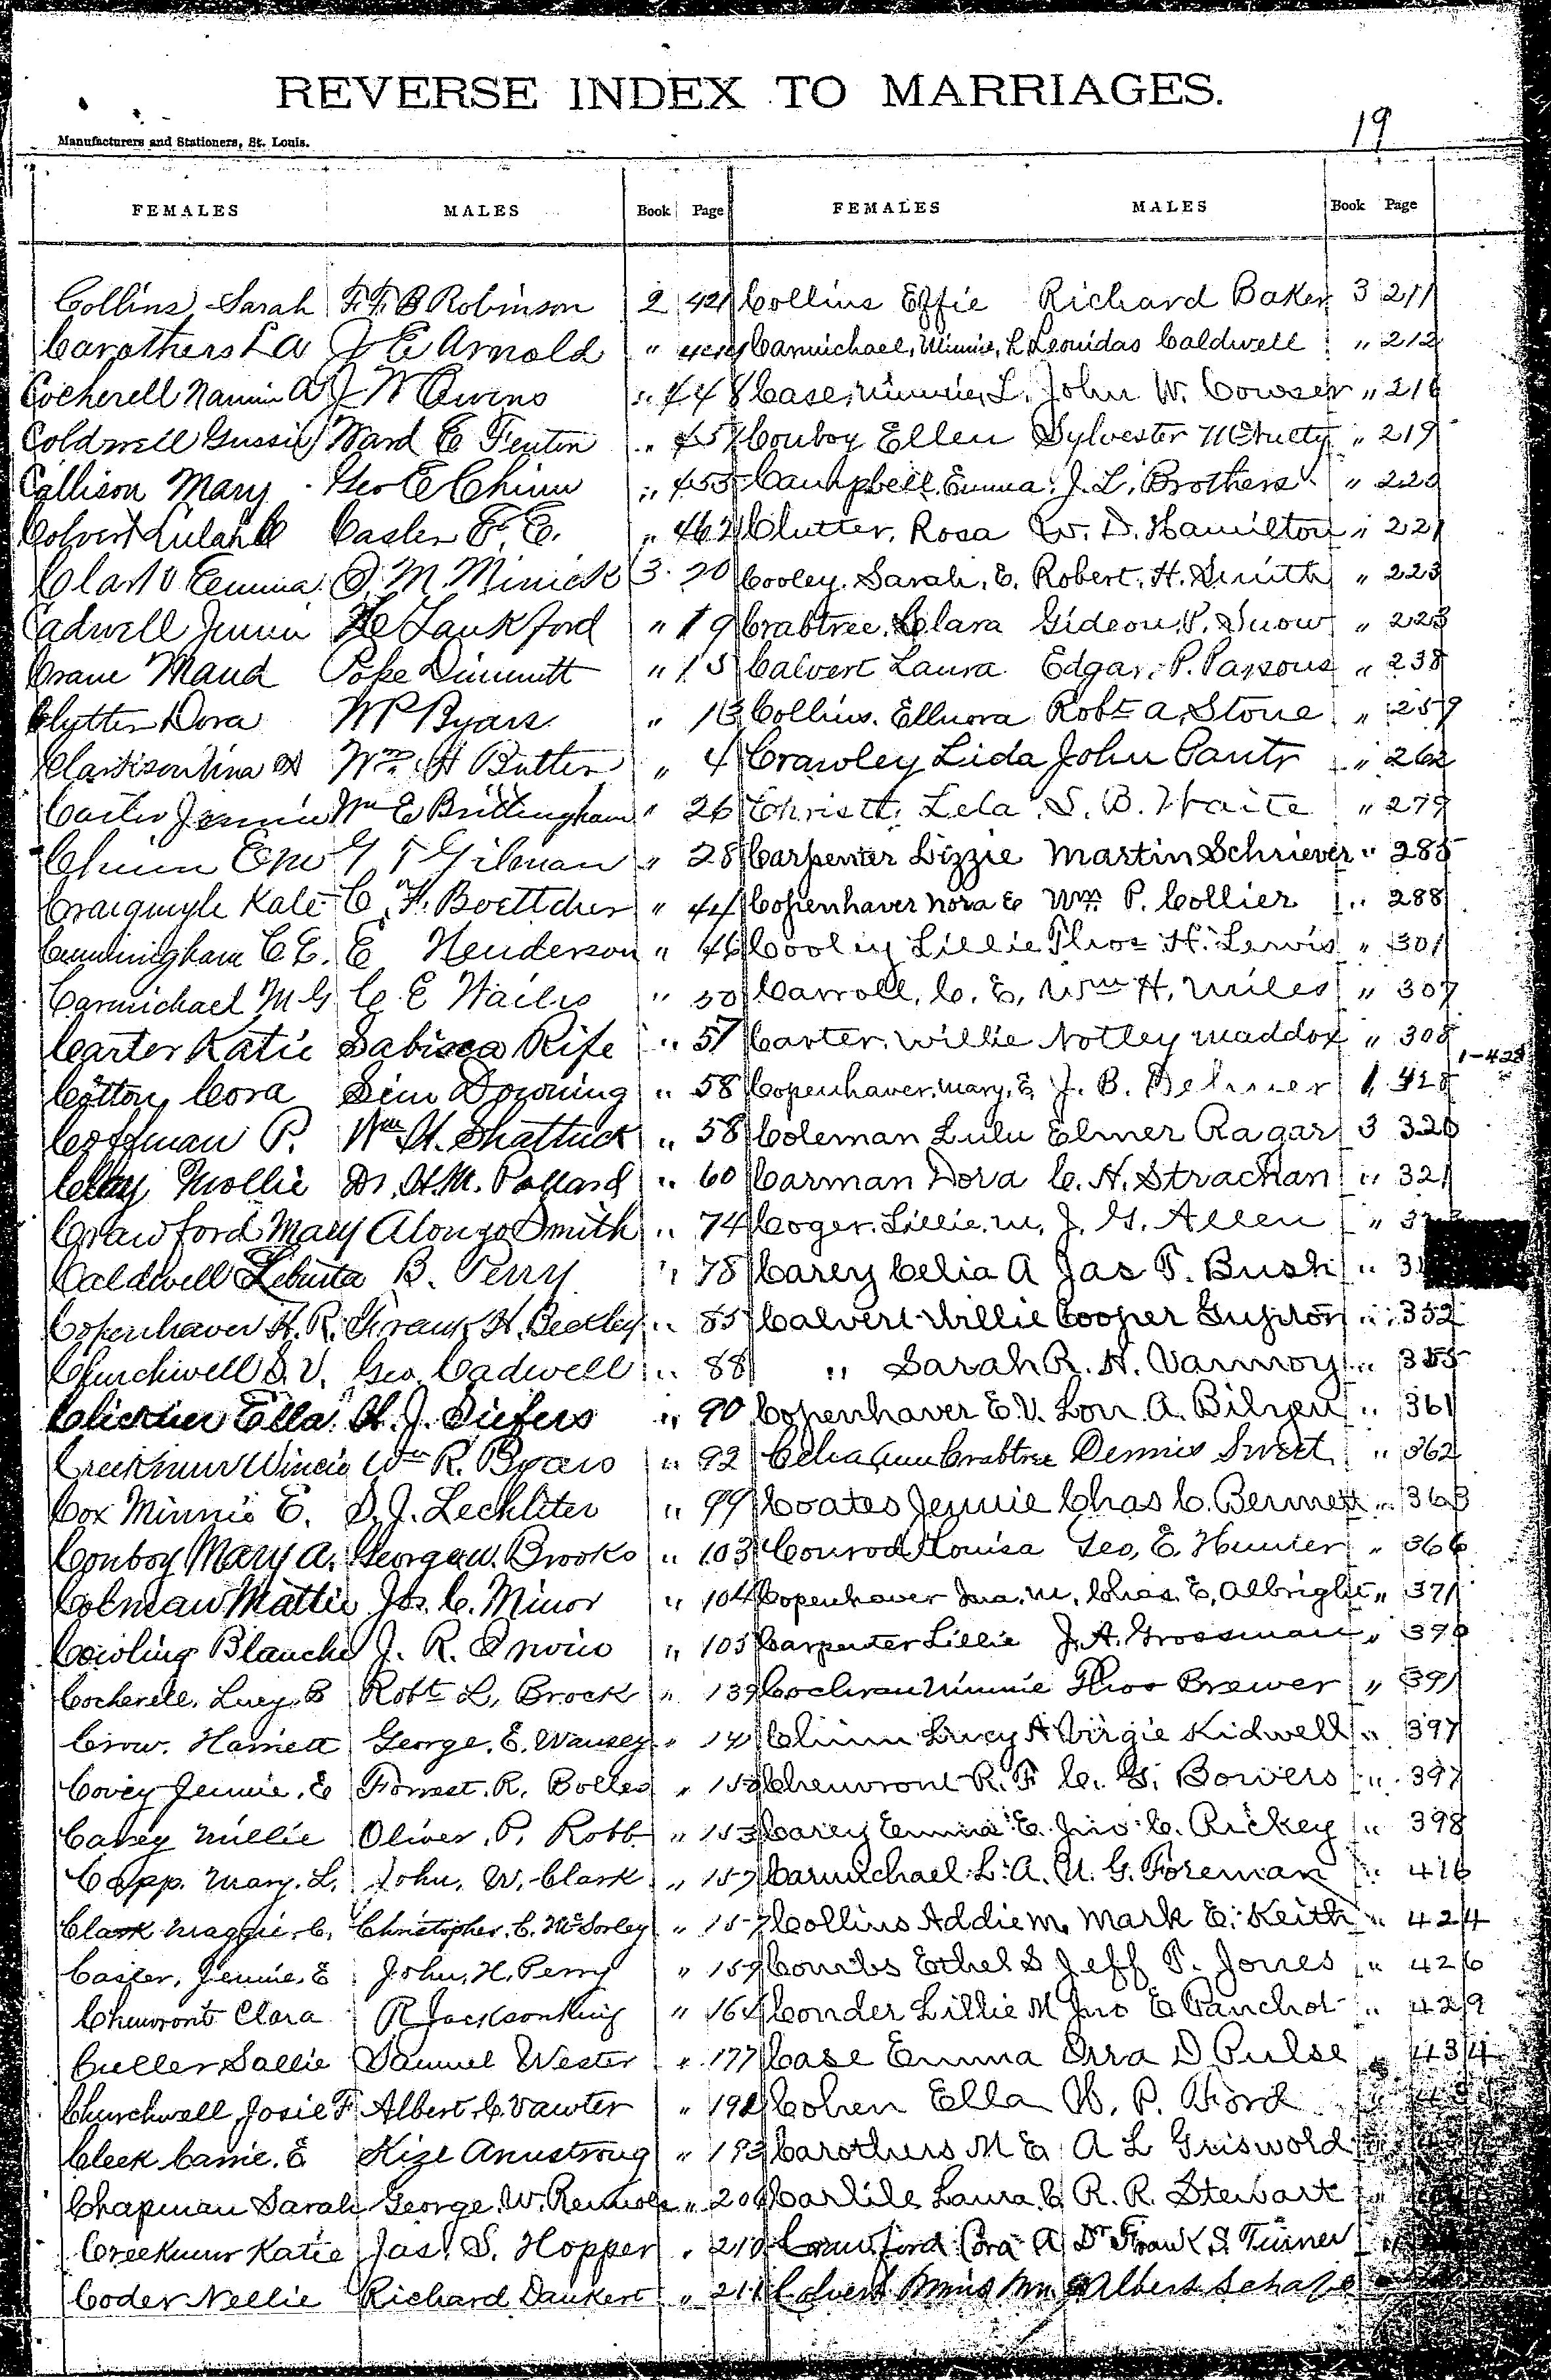 REVERSE INDEX TO MARRIAGES.
19
Manufacturers and Stationers, St. Louis.
FEMALES MALES Book Page FEMALES MALES Book Page
Collins Sarah F. F. B Robinson 2 421 Collins Effie Richard Baker 3 211
Carothers L A J E Arnold " Carmichael, Minnie, L Leonidas Caldwell " 212
Cocherell Nannie A J W Owens " 448 Case, Minnie, L. John W. Cowser " 216
Coldwell Gussie Ward C Fenton " 457 Conboy Ellen Sylvester " 219
Callison Mary Geo E Chinn " 455 Campbell, Emma J. L. Brothers " 220
Colvert Casler F. E. " 462 Clutter, Rosa W. D. Hamilton " 221
Clark Emma M. Minick 3 20 Cooley, Sarah, E. Robert, H. Smith " 223
Cadwell Jennie Lankford " 19 Crabtree, Clara Gideon, P. Snow " 223
Crane Maud Poke Dimmitt " 15 Calvert Laura Edgar, P. Parsons " 238
Clytter Dora W P Byars " 13 Collins, Ellnora Robt A, Stone " 259
Wm. H Butler " 4 Crawley Lida John " 262
Carter Jennie Wm E Brittingham " 26 Christt, Lela S. B. Waite " 279
Chinn G T Gilman " 28 Carpenter Lizzie Martin Schriever " 285
Craigmyle Kate C. F. Boettcher " 44 Copenhaver Nora E Wm. P. Collier " 288
Cunningham C E. E Henderson " 46 Cooley Lillie Thos H. Lewis " 301
Carmichael M G C. E Wailes " 50 Carroll, C. E, Wm H. Miles " 307
Carter Katie Rife " 57 Carter, Willie Notley Maddox " 308
1-428
Cotton Cora Sim Downing " 58 Copenhaver, Mary, E J. B. 1 428
Coffman P. Wm H. Shattuck " 58 Coleman Lulu Elmer Ragar 3 320
Clay Mollie Dr. H. M. Pollard " 60 Carman Dora C. H. Strachan " 321
Crawford Mary Alonzo Smith " 74 Coger, Lillie, M, J. G. Allen "
Caldwell B. Perry " 78 Carey Celia A Jas T. Bush "
Copenhaver H. R. Frank H. Beckley " 85 Calvert Willie Cooper Gupton " 352
Churchwell S. V. Geo. Cadwell " 88 " Sarah R. H. Vannoy " 355
Clickner Ella H. J. Siefers " 90 Copenhaver E. V. Lon A. Bilyeu " 361
Creekmur Wincie Wm R. Byars " 92 Celia Ann Crabtree Dennis Sweet " 362
Cox Minnie E. S. J. Lechliter " 99 Coates Jennie Chas C. Bennett " 363
Conboy Mary A. George W. Brooks " 103 Conrod Louisa Geo, E. Hunter " 366
Colman Mattie Jos. C. Minor " 104 Copenhaver M. Chas. E, Albright " 371
Cowling Blanche J. R. " 105 Carpenter Lillie J. A. Grossman " 390
Cocherell, Lucy, B Robt L, Brock " 139 Cochran Minnie Thos Brewer " 391
Crow, Harriett George, E. " 141 Chinn Lucy A Virgie Kidwell " 397
Covey Jennie, E Forrest, R, Bolles " Cheuvront R. F C. G. Bowers " 397
Carey Millie Oliver, P, Robb " 153 Carey Emma E. Jno C. Rickey " 398
Capp, Mary, L, John, W, Clark " 157 Carmichael L. A. U. G. Foreman " 416
Clark Maggie, C, Christopher, C, McSorley " 157 Collins Addie M. Mark E. Keith " 424
Casler, Jennie, E John, H, Perry " 159 Combs Ethel S Jeff T. Jones " 426
Cheuvront Clara R Jackson King " 164 Conder Lillie M Jno E Panchot " 429
Culler Sallie Samuel Wester " 177 Case Emma Orra D Pulse " 434
Churchwell, Josie F Albert, C. Vawter " 192 Cohen Ella W. P. Ford
Cleek Carrie, E Kize Armstrong " 193 Carothers M E A L Griswold
Chapman Sarah George, W. " 206 Carlile Laura C R. R. Stewart
Creekmur Katie Jas. S. Hopper " 210 Crawford Cora A Dr Frank S. Turner
Coder Nellie Richard Dankert " 211 Albert